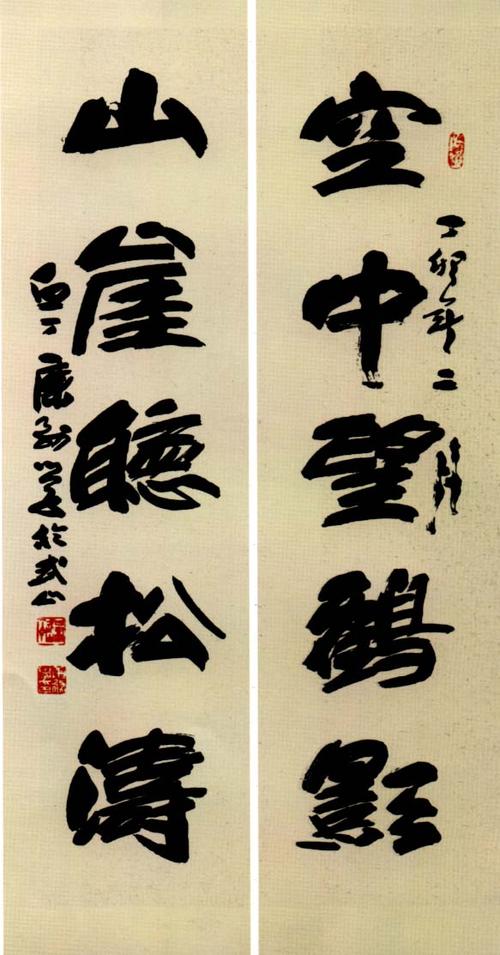 丁卯年二月
空中望鶴影
山崖聽松濤
丁康於武山